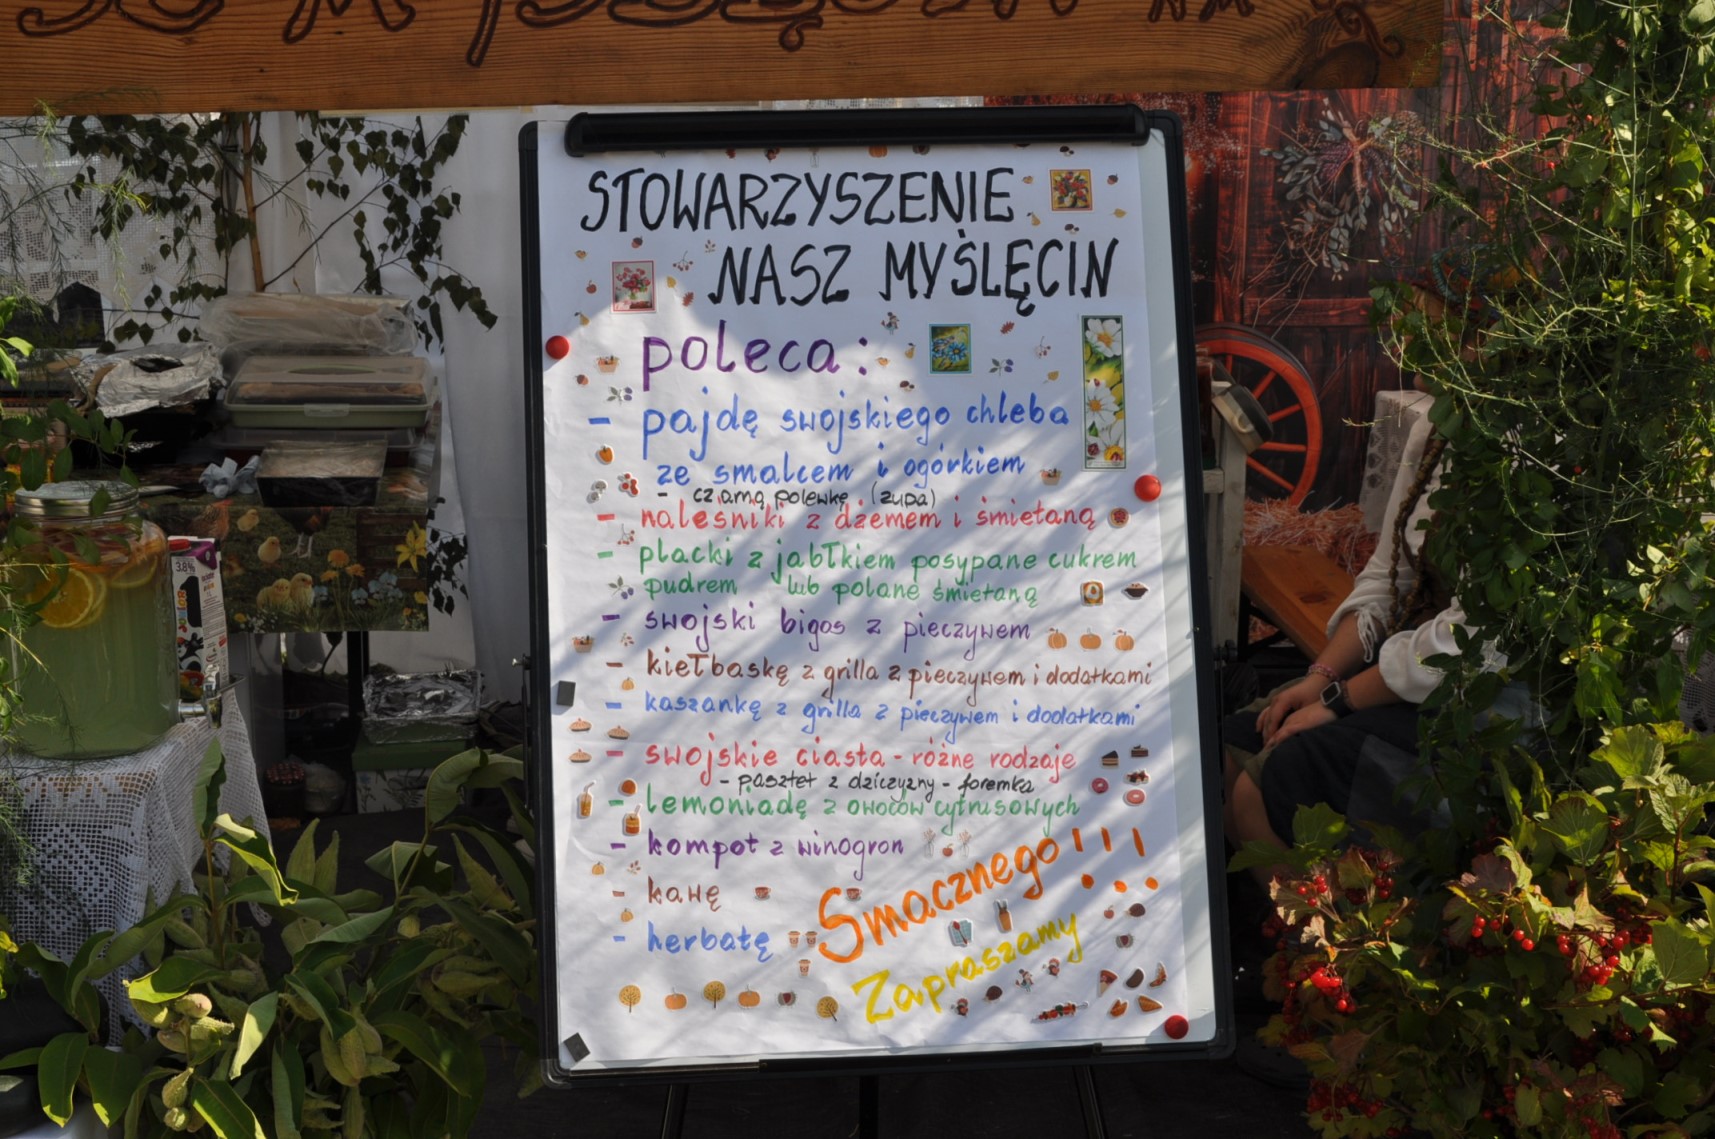 STOWARZYSZENIE
NASZ MYŚLĘCIN
poleca:
- pajdę swojskiego chleba
ze smalcem i ogórkiem
- czarną polewkę (zupa)
- naleśniki z dżemem i śmietaną
- placki z jabłkiem posypane cukrem
pudrem lub polane śmietaną
- swojski bigos z pieczywem
- kiełbaskę z grilla z pieczywem i dodatkami
- kaszankę z grilla z pieczywem i dodatkami
- swojskie ciasta - różne rodzaje
- pasztet z dziczyzny - foremka
- lemoniadę z owoców cytrusowych
- kompot z winogron
- kawę
- herbatę
Smacznego!!!
Zapraszamy
3.8%